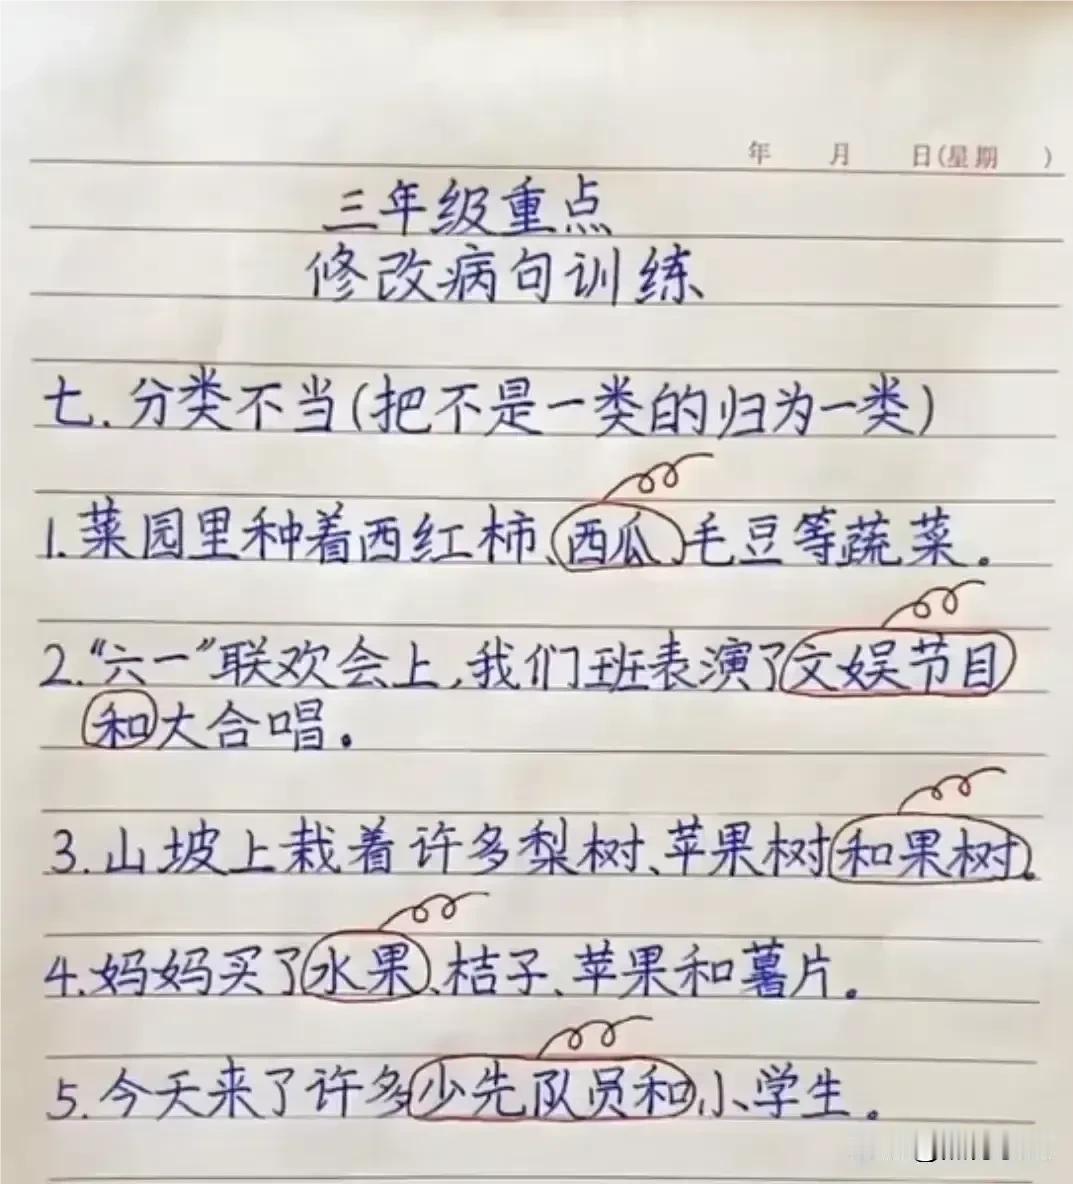 年 月 日(星期 )
三年级重点
修改病句训练
七.分类不当(把不是一类的归为一类)
1.菜园里种着西红柿、西瓜、毛豆等蔬菜。
2.“六一”联欢会上,我们班表演了文娱节目
和大合唱。
3.山坡上栽着许多梨树、苹果树和果树。
4.妈妈买了水果、桔子、苹果和薯片。
5.今天来了许多少先队员和小学生。